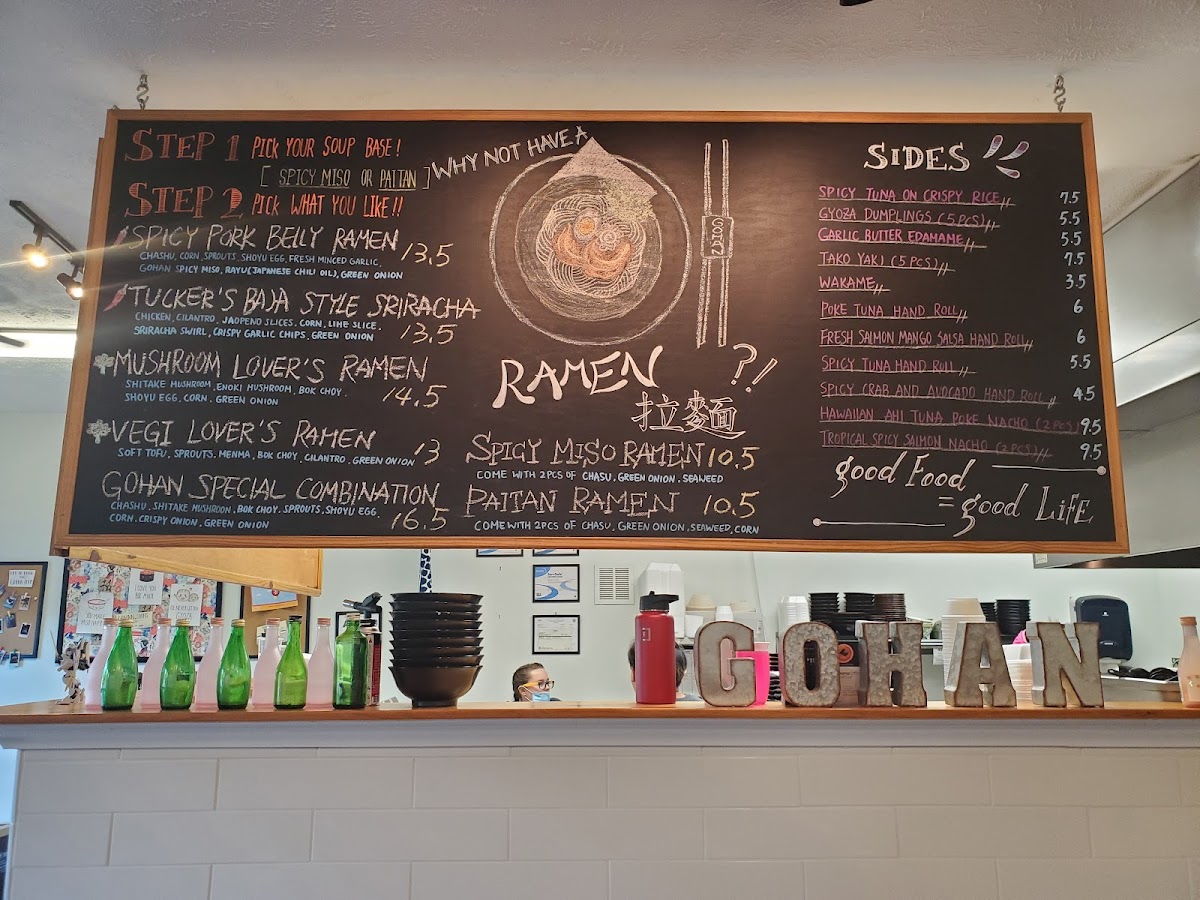 STEP 1 PICK YOUR SOUP BASE!
[ SPICY MISO OR PAITAN ]
STEP 2 PICK WHAT YOU LIKE!!
SPICY PORK BELLY RAMEN 13.5
CHASHU, CORN, SPROUTS, SHOYU EGG, FRESH MINCED GARLIC,
GOHAN SPICY MISO, RAYU(JAPANESE CHILI OIL), GREEN ONION
TUCKER'S BAJA STYLE SRIRACHA
CHICKEN, CILANTRO, JAOPENO SLICES, CORN, LIME SLICE,
SRIRACHA SWIRL, CRISPY GARLIC CHIPS, GREEN ONION 13.5
MUSHROOM LOVER'S RAMEN
SHITAKE MUSHROOM, ENOKI MUSHROOM, BOK CHOY,
SHOYU EGG, CORN, GREEN ONION 14.5
VEGI LOVER'S RAMEN
SOFT TOFU, SPROUTS, MENMA, BOK CHOY, CILANTRO, GREEN ONION 13
GOHAN SPECIAL COMBINATION
CHASHU, SHITAKE MUSHROOM, BOK CHOY, SPROUTS, SHOYU EGG,
CORN, CRISPY ONION, GREEN ONION 16.5
WHY NOT HAVE A
GOHAN
RAMEN ?!
拉麵
SPICY MISO RAMEN 10.5
COME WITH 2PCS OF CHASU, GREEN ONION, SEAWEED
PAITAN RAMEN 10.5
COME WITH 2PCS OF CHASU, GREEN ONION, SEAWEED, CORN
SIDES
SPICY TUNA ON CRISPY RICE 7.5
GYOZA DUMPLINGS (5PCS) 5.5
GARLIC BUTTER EDAMAME 5.5
TAKO YAKI (5PCS) 7.5
WAKAME 3.5
POKE TUNA HAND ROLL 6
FRESH SALMON MANGO SALSA HAND ROLL 6
SPICY TUNA HAND RULL 5.5
SPICY CRAB AND AVOCADO HAND ROLL 4.5
HAWAIIAN AHI TUNA POKE NACHO (2PCS) 9.5
TROPICAL SPICY SALMON NACHO (2PCS) 9.5
good Food
= good LiFE
GOHAN